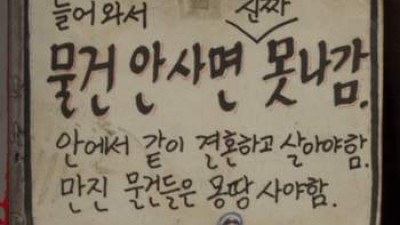 들어 와서 진짜
물건 안 사면 못 나감.
안에서 같이 결혼하고 살아야함.
만진 물건들은 몽땅 사야함.